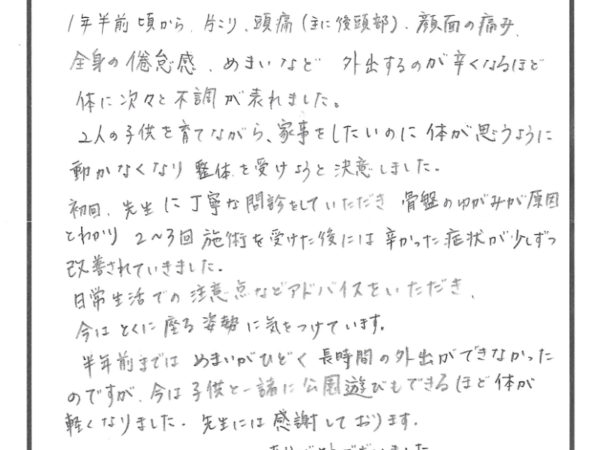 1年半前頃から、肩こり、頭痛(主に後頭部)、顔面の痛み、
全身の倦怠感、めまいなど 外出するのが辛くなるほど
体に次々と不調が表れました。
2人の子供を育てながら、家事をしたいのに体が思うように
動かなくなり 整体を受けようと決意しました。
初回、先生に丁寧な問診をしていただき 骨盤のゆがみが原因
とわかり 2〜3回施術を受けた後には辛かった症状が少しずつ
改善されていきました。
日常生活での注意点などアドバイスをいただき、
今はとくに座る姿勢に気をつけています。
半年前までは めまいがひどく長時間の外出ができなかった
のですが、今は子供と一諸に公園遊びもできるほど体が
軽くなりました。先生には感謝しております。